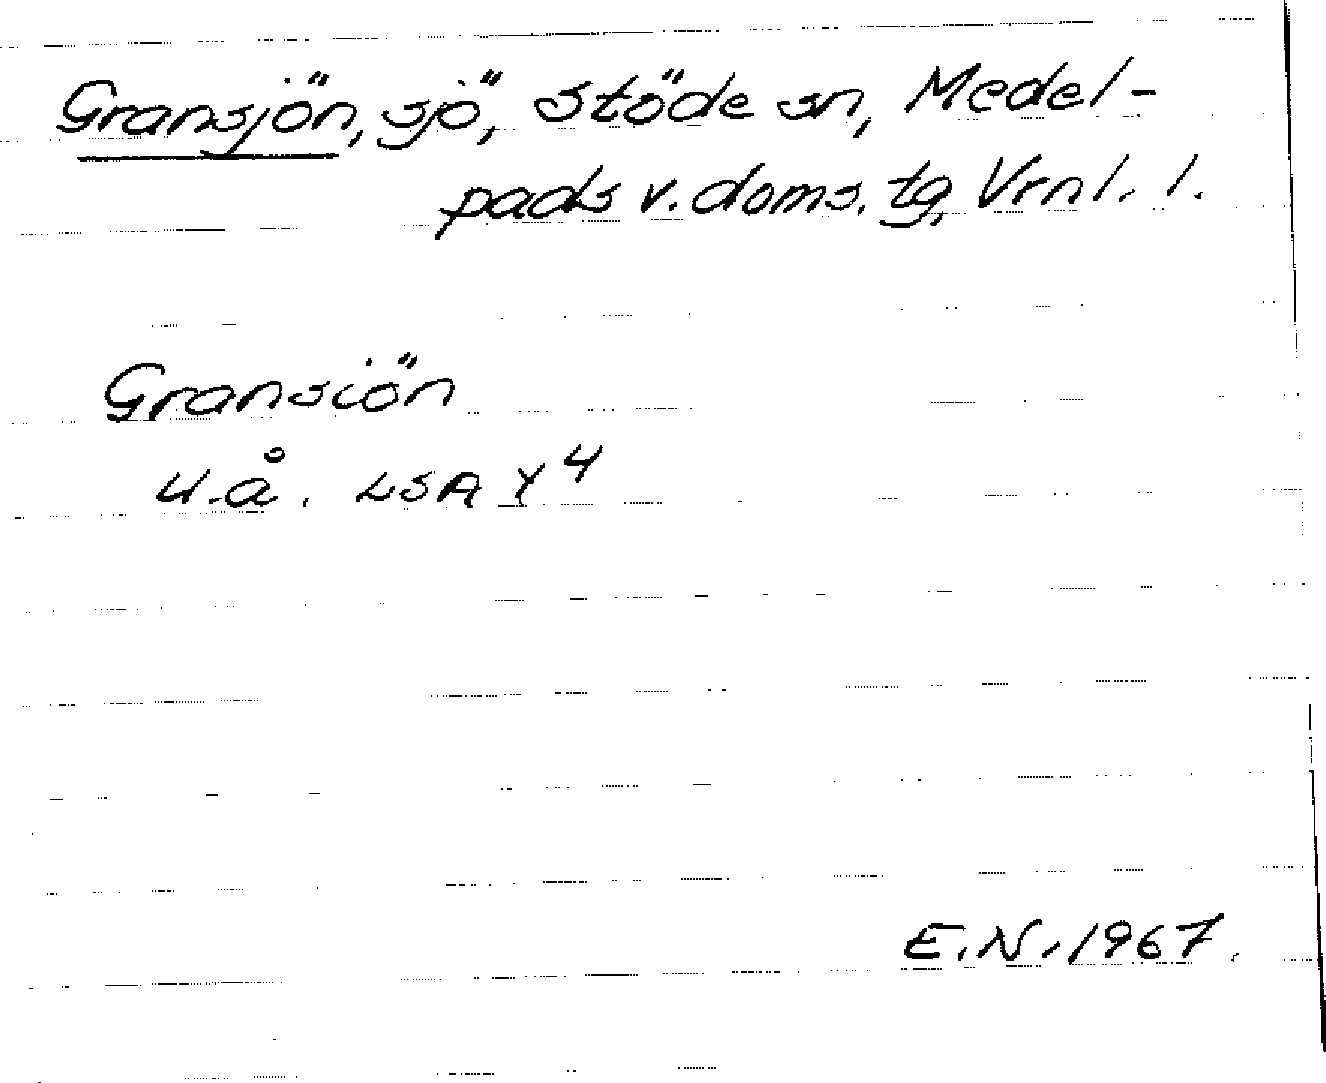 Gransjön, sjö, Stöde sn, Medel-
pads v. doms. tg, Vrnl. l.
Gransiön
u.å. LSA Y 4
E.N. 1967.